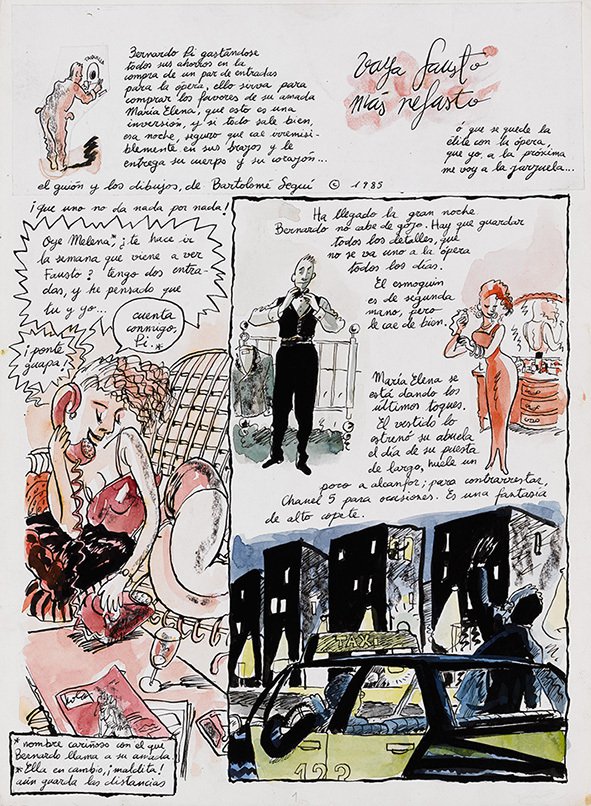 TAQUILLA
Bernardo Pi gastándose
todos sus ahorros en la
compra de un par de entradas
para la ópera, ello sirva para
comprar los favores de su amada
María Elena, que esto es una
inversión, y si todo sale bien,
esa noche, seguro que cae irremisi-
blemente en sus brazos y le
entrega su cuerpo y su corazón...
vaya fausto
más nefasto
ó que se quede la
élite con la ópera,
que yo, a la próxima
me voy a la zarzuela...
el guión y los dibujos, de Bartolomé Seguí © 1985
¡que uno no da nada por nada!
Oye Melena*, ¿te hace ir
la semana que viene a ver
Fausto? tengo dos entra-
das, y he pensado que
tu y yo...
cuenta
conmigo,
Pi.*
¡ponte
guapa!
*nombre cariñoso con el que
Bernardo llama a su amada
*Ella en cambio, ¡maldita!
aún guarda las distancias
Ha llegado la gran noche
Bernardo no cabe de gozo. Hay que guardar
todos los detalles, que
no se va uno a la ópera
todos los días.
El esmoquin
es de segunda
mano, pero
le cae de bien.
María Elena se
está dando los
últimos toques.
El vestido lo
estrenó su abuela
el día de su puesta
de largo, huele un
poco a alcanfor; para contrarrestar,
Chanel 5 para ocasiones. Es una fantasía
de alto copete.
TAXI
122
1